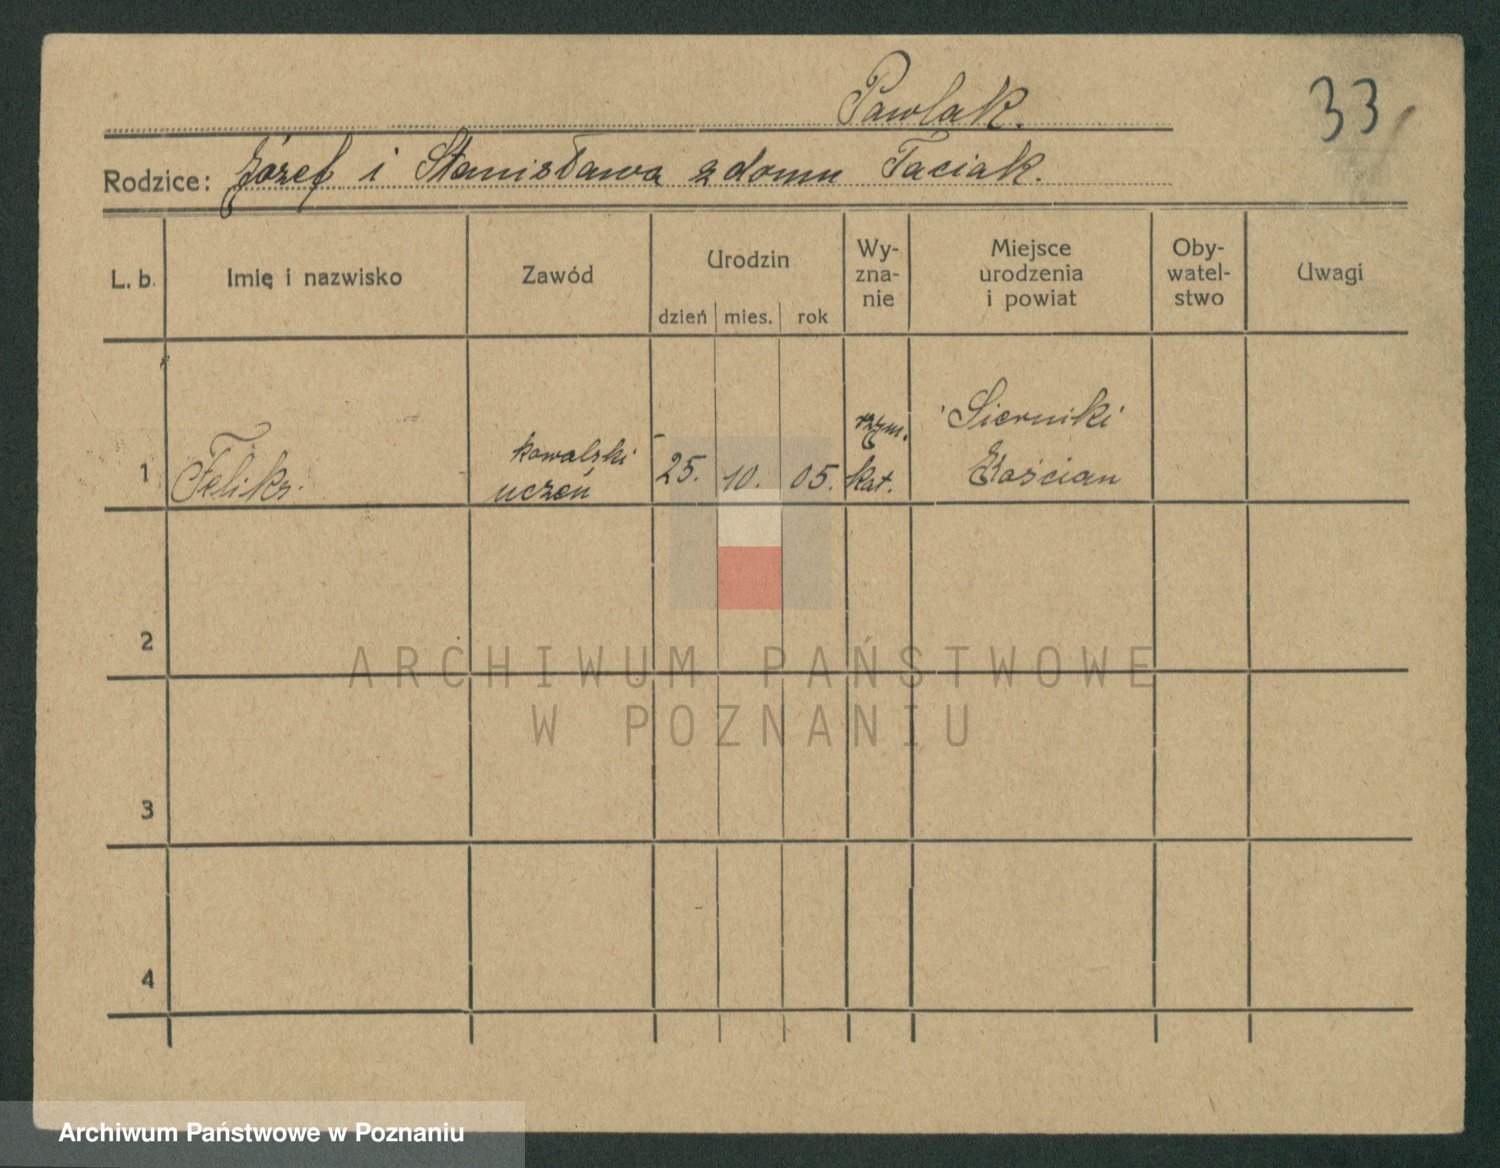 Pawlak.
33
Rodzice: Józef i Stanisława z domu Taciak.
L. b. Imię i nazwisko Zawód Urodzin dzień mies. rok Wy-zna-nie Miejsce urodzenia i powiat Oby-watel-stwo Uwagi
1 Feliks. kowalski uczeń 25. 10. 05. rzym. kat. Sierniki Kościan
2
3
4
ARCHIWUM PAŃSTWOWE
W POZNANIU
Archiwum Państwowe w Poznaniu